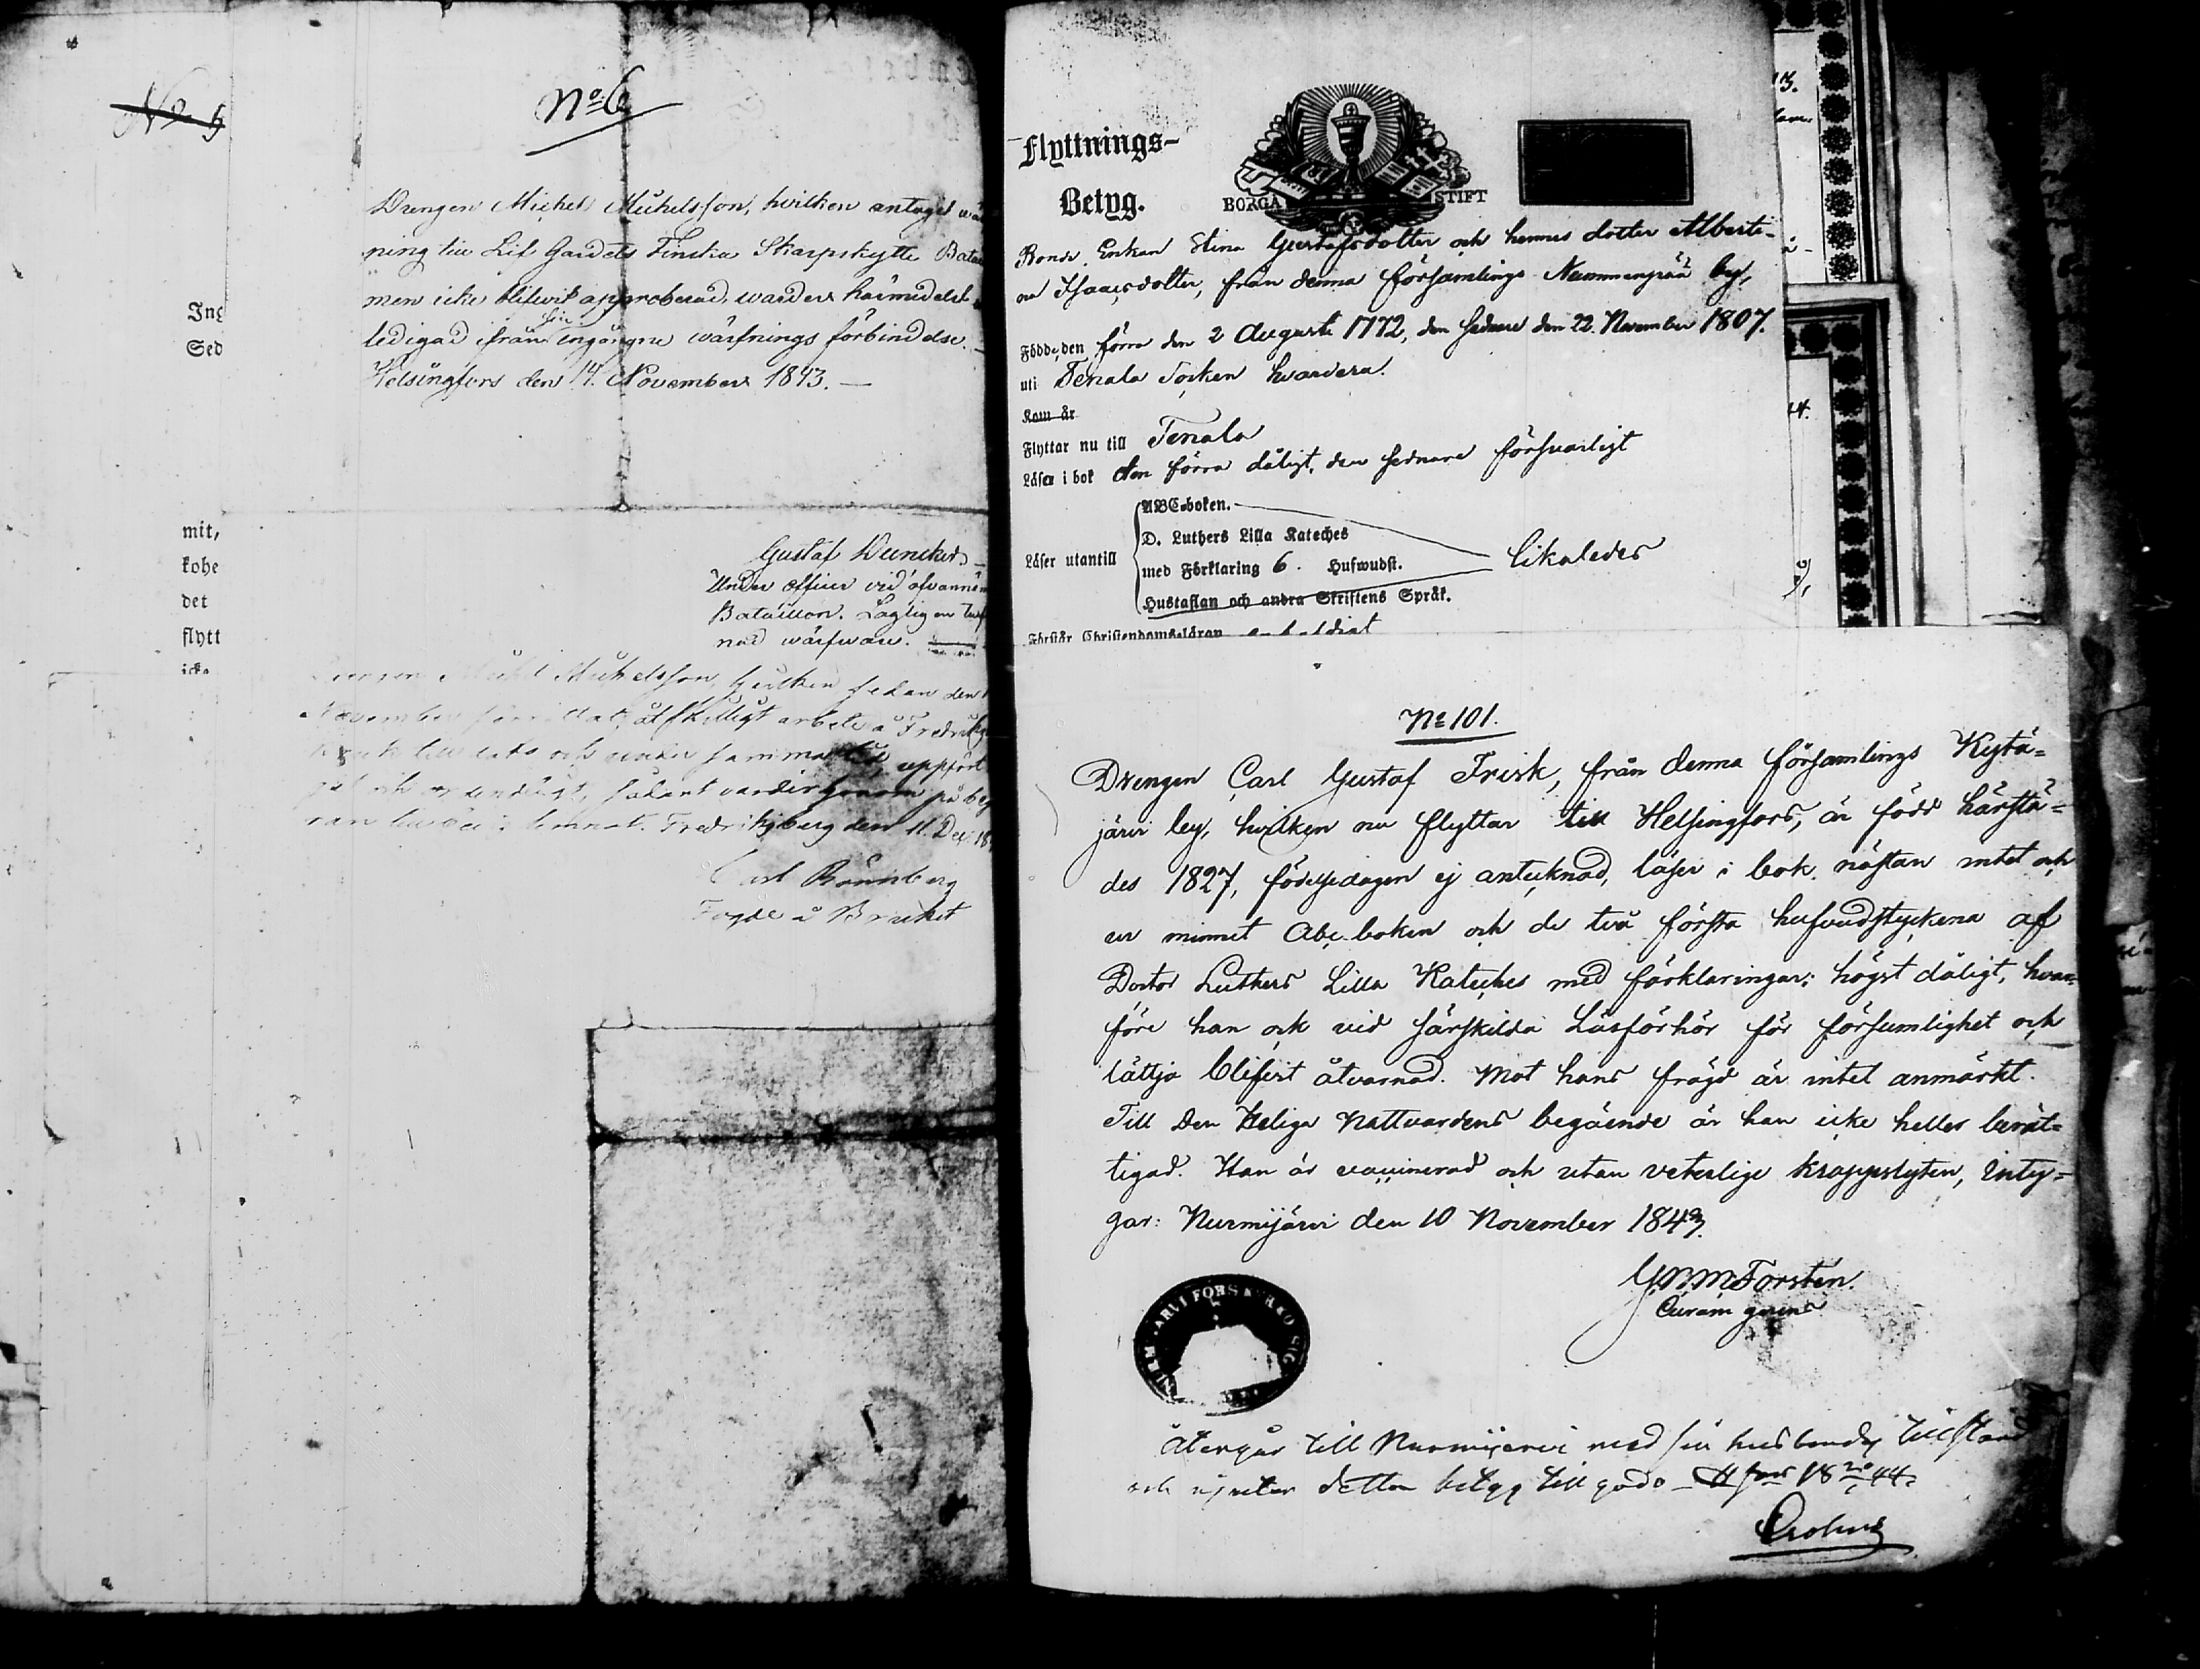 No 5
No 6
Drengen Michel Michelsson, hvilken antagit wär
ning till Lif Gardets Finska Skarpskytte Batai
men icke blifwit approberad, warder härmedelst
ledigad ifrån sin ingångne wärfnings förbindelse.
Helsingfors den 14. November 1843. —
Ing
Sed
mit,
kohe
det
flytt
icke
Gustaf
Under officer vid ofvannäm
Bataillon. Laglig en
nad wärfware.
Michel Michelsson, hvilken sedan den
November förrättat åtskilligt arbete å Fredriks
och under samma tid uppfört
sig sådant varder honom på beg
ran lemnat. Fredriksberg den 11. Dec. 18
Carl Rönnberg
Fogde å Bruket
Flyttnings-
Betyg.
BORGÅ STIFT
Bonde Enkan Stina Gustafsdotter och hennes dotter Alberti-
na Isaacsdotter, från denna församlings Nummenpää by,
Födde, den förra den 2 Augusti 1772, den sednare den 22. November 1807.
uti Tenala Socken hvardera.
Kom år
Flyttar nu till Tenala
Läser i bok den förra dåligt, den sednare försvarligt
ABC-boken.
D. Luthers Lilla Kateches
Läser utantill med Förklaring 6. Hufwudst. likaledes
Hustaflan och andra Skriftens Språk.
Förstår Christendomsläran
No 101.
Drengen Carl Gustaf Frisk, från denna församlings Kytä-
järvi by, hvilken nu flyttar till Helsingfors, är född härstä-
des 1827, födelsedagen ej antecknad, läser i bok nästan intet och
ur minnet Abc-boken och de två första hufvudstyckena af
Doctor Luthers Lilla Kateches med förklaringar; högst dåligt, hvar-
före han ock vid särskilda Läsförhör för försumlighet och
lättja blifvit åtvarnad. Mot hans frägd är intet anmärkt.
Till Den Heliga Nattvardens begående är han icke heller berät-
tigad. Han är vaccinerad och utan veterlige kroppslyten, Inty-
gar: Nurmijärvi den 10 November 1843.
G.B.M. Forstén.
Curam gerens
Återgår till Nurmijervi med sin husbondes tillstånd
och njuter detta betyg till godo — H:fors 18 44.